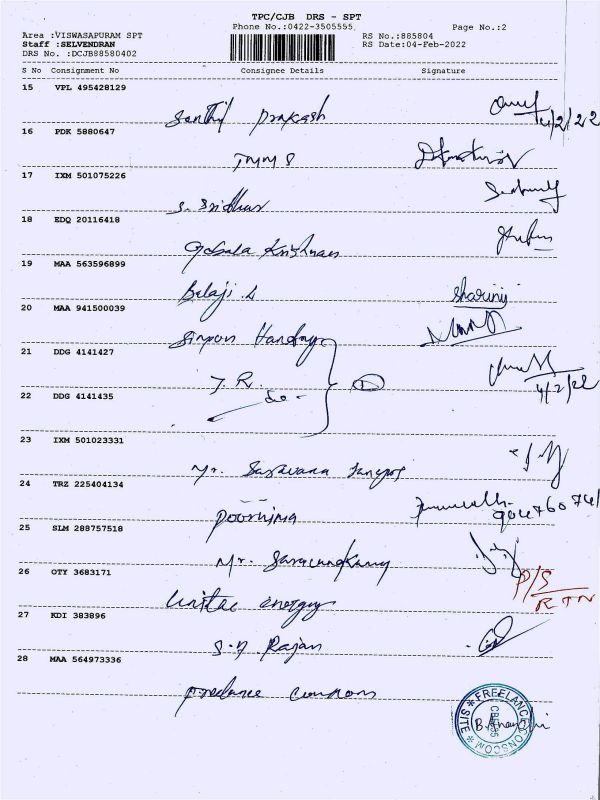 TPC/CJB DRS - SPT
Phone No.:0422-3505555
Page No.:2
Area :VISWASAPURAM SPT
RS No.:885804
Staff :SELVENDRAN
RS Date:04-Feb-2022
DRS No. :DCJB88580402
S No Consignment No Consignee Details Signature
15 VPL 495428129
Senthil Prakash
4/2/22
16 PDK 5880647
TMM S
17 IXM 501075226
S. Sridhar
18 EDQ 20116418
Gobala Krishnan
19 MAA 563596899
Balaji S
Sharini
20 MAA 941500039
21 DDG 4141427
J. R.
4/2/22
22 DDG 4141435
do -
23 IXM 501023331
Mr. Saravana
24 TRZ 225404134
Poornima
25 SLM 288757518
Mr.
26 OTY 3683171
energy
P/S
RTN
27 KDI 383896
S. N Rajan
28 MAA 564973336
Freelance
FREELANCE CONSCOM SITE